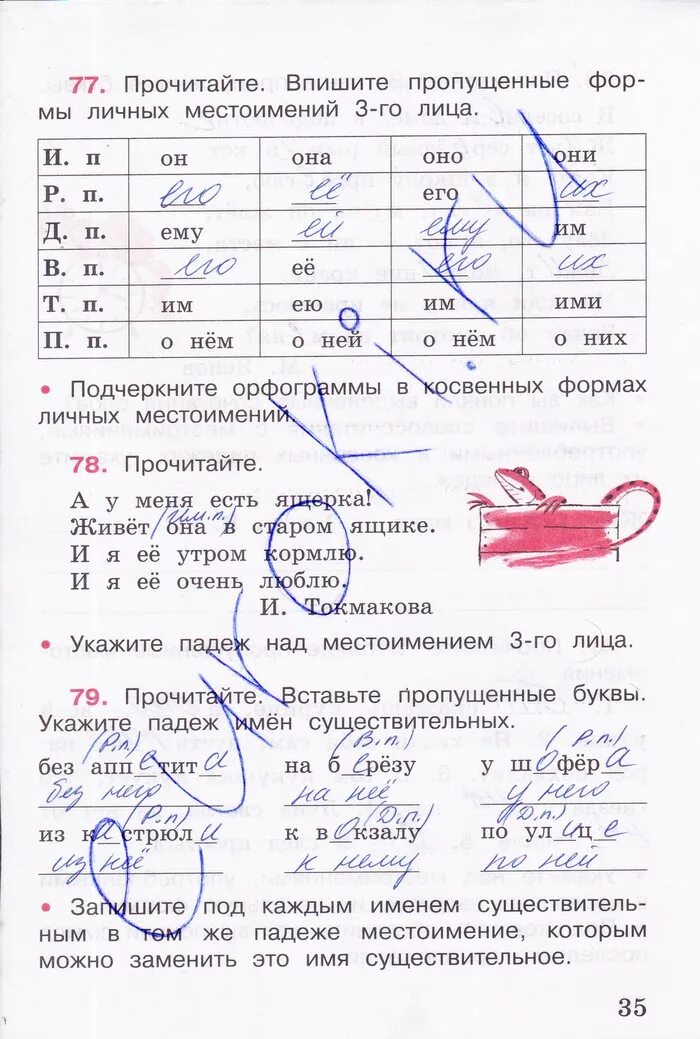 77. Прочитайте. Впишите пропущенные фор-
мы личных местоимений 3-го лица.
И. п он она оно они
Р. п. его её его их
Д. п. ему ей ему им
В. п. его её его их
Т. п. им ею им ими
П. п. о нём о ней о нём о них
• Подчеркните орфограммы в косвенных формах
личных местоимений.
78. Прочитайте.
А у меня есть ящерка!
(им.п.)
Живёт она в старом ящике.
И я её утром кормлю.
И я её очень люблю.
И. Токмакова
• Укажите падеж над местоимением 3-го лица.
79. Прочитайте. Вставьте пропущенные буквы.
Укажите падеж имён существительных.
(Р.п) (В.п.) (Р.п.)
без аппетита на берёзу у шофёра
без него на неё у него
(Р.п.) (Д.п.) (Д.п.)
из кастрюли к вокзалу по улице
из неё к нему по ней
• Запишите под каждым именем существитель-
ным в том же падеже местоимение, которым
можно заменить это имя существительное.
35